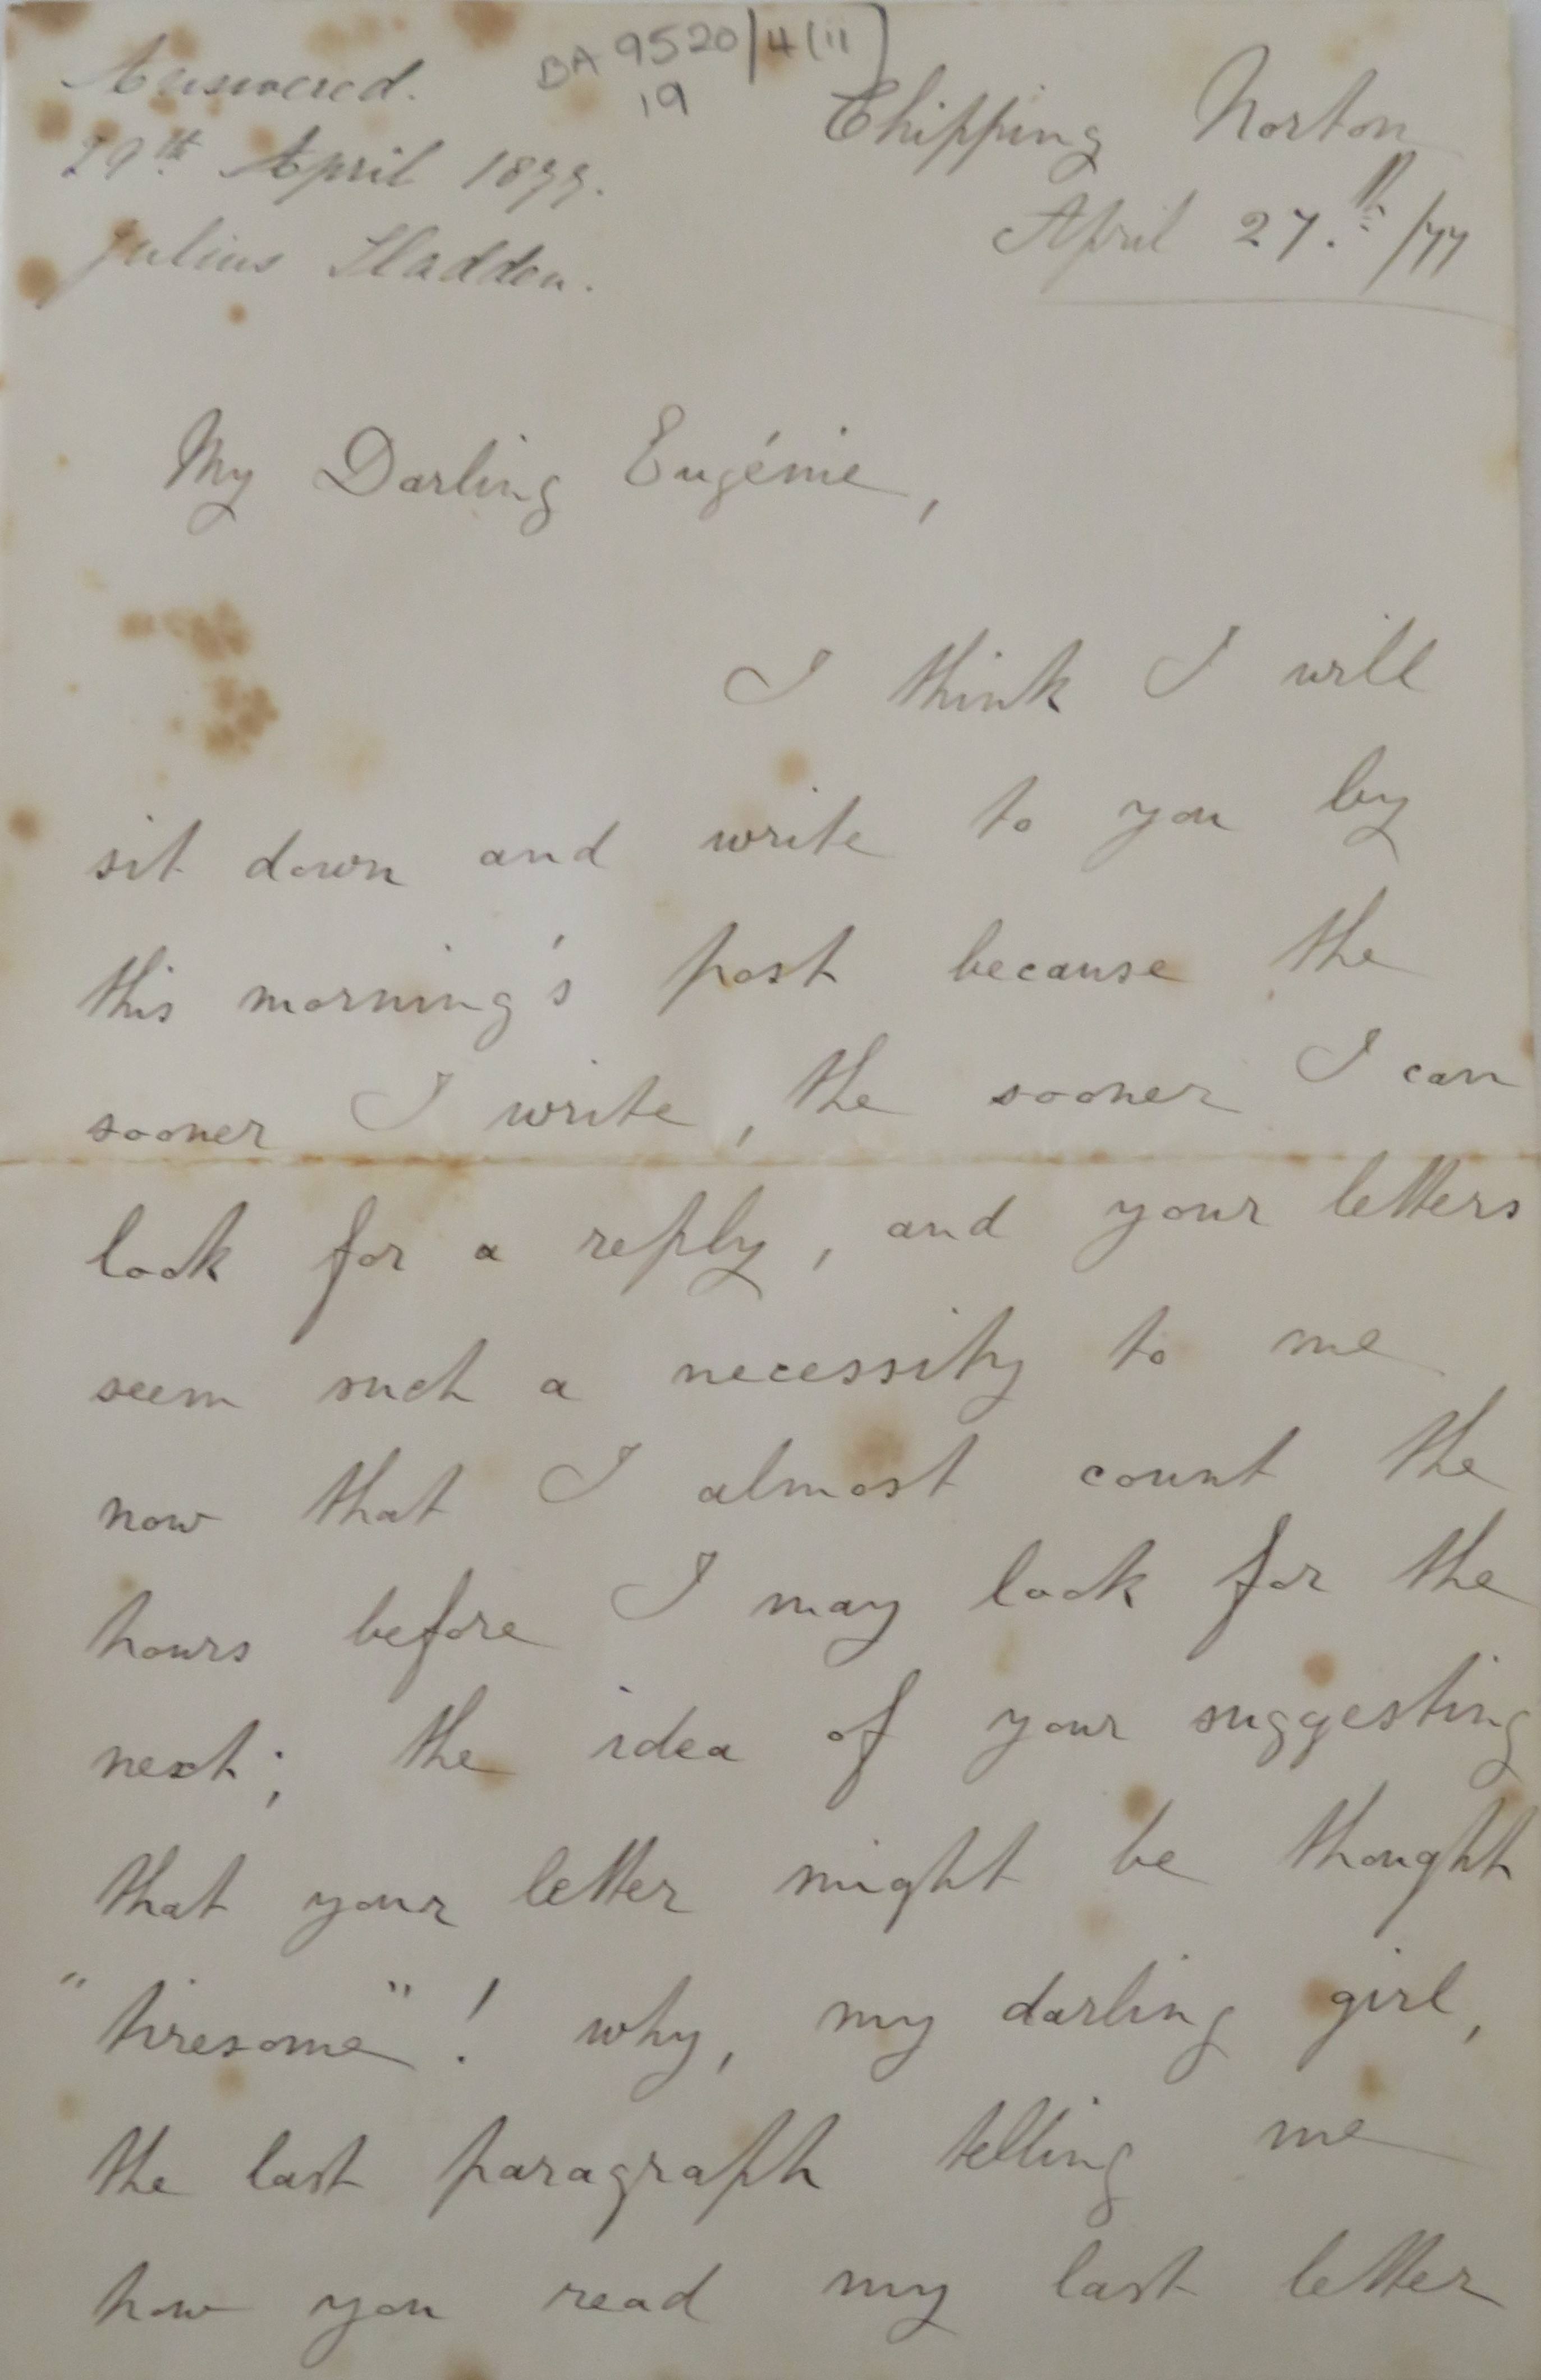 BA 9520/4(ii)
19
Answered.
29th April 1877.
Julius Sladden.
Chipping Norton
April 27.th /77
My Darling Eugénie,
I think I will
sit down and write to you by
this morning's post because the
sooner I write, the sooner I can
look for a reply, and your letters
seem such a necessity to me
now that I almost count the
hours before I may look for the
next; the idea of your suggesting
that your letter might be thought
"tiresome"! why, my darling girl,
the last paragraph telling me
how you read my last letter